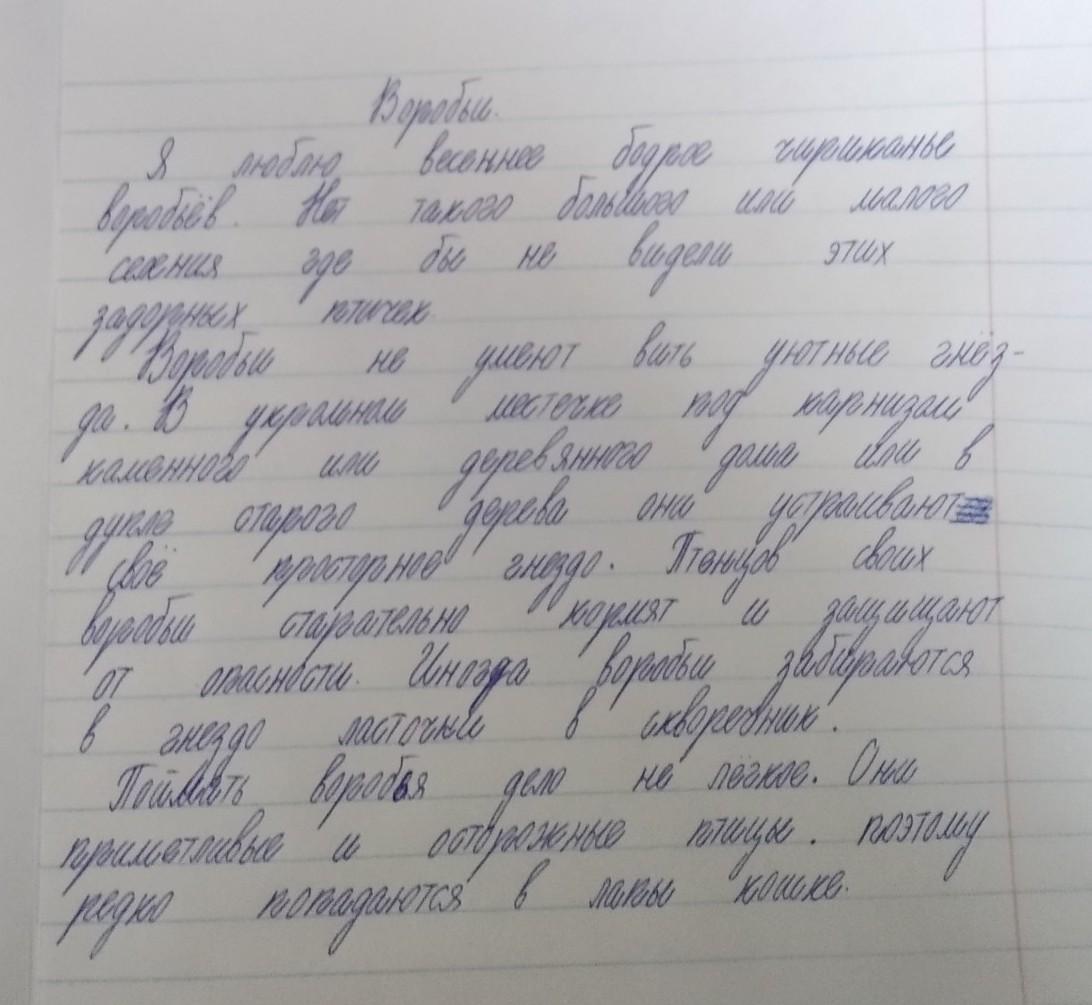 Воробьи.
Я люблю весеннее бодрое чириканье
воробьёв. Нет такого большого или малого
селения где бы не видели этих
задорных птичек.
Воробьи не умеют вить уютные гнёз-
да. В укромном местечке под карнизом
каменного или деревянного дома или в
дупле старого дерева они устраивают
своё просторное гнездо. Птенцов своих
воробьи старательно кормят и защищают
от опасности. Иногда воробьи забираются
в гнездо ласточки в скворечник.
Поймать воробья дело не лёгкое. Они
приметливые и осторожные птицы. поэтому
редко попадаются в лапы кошке.